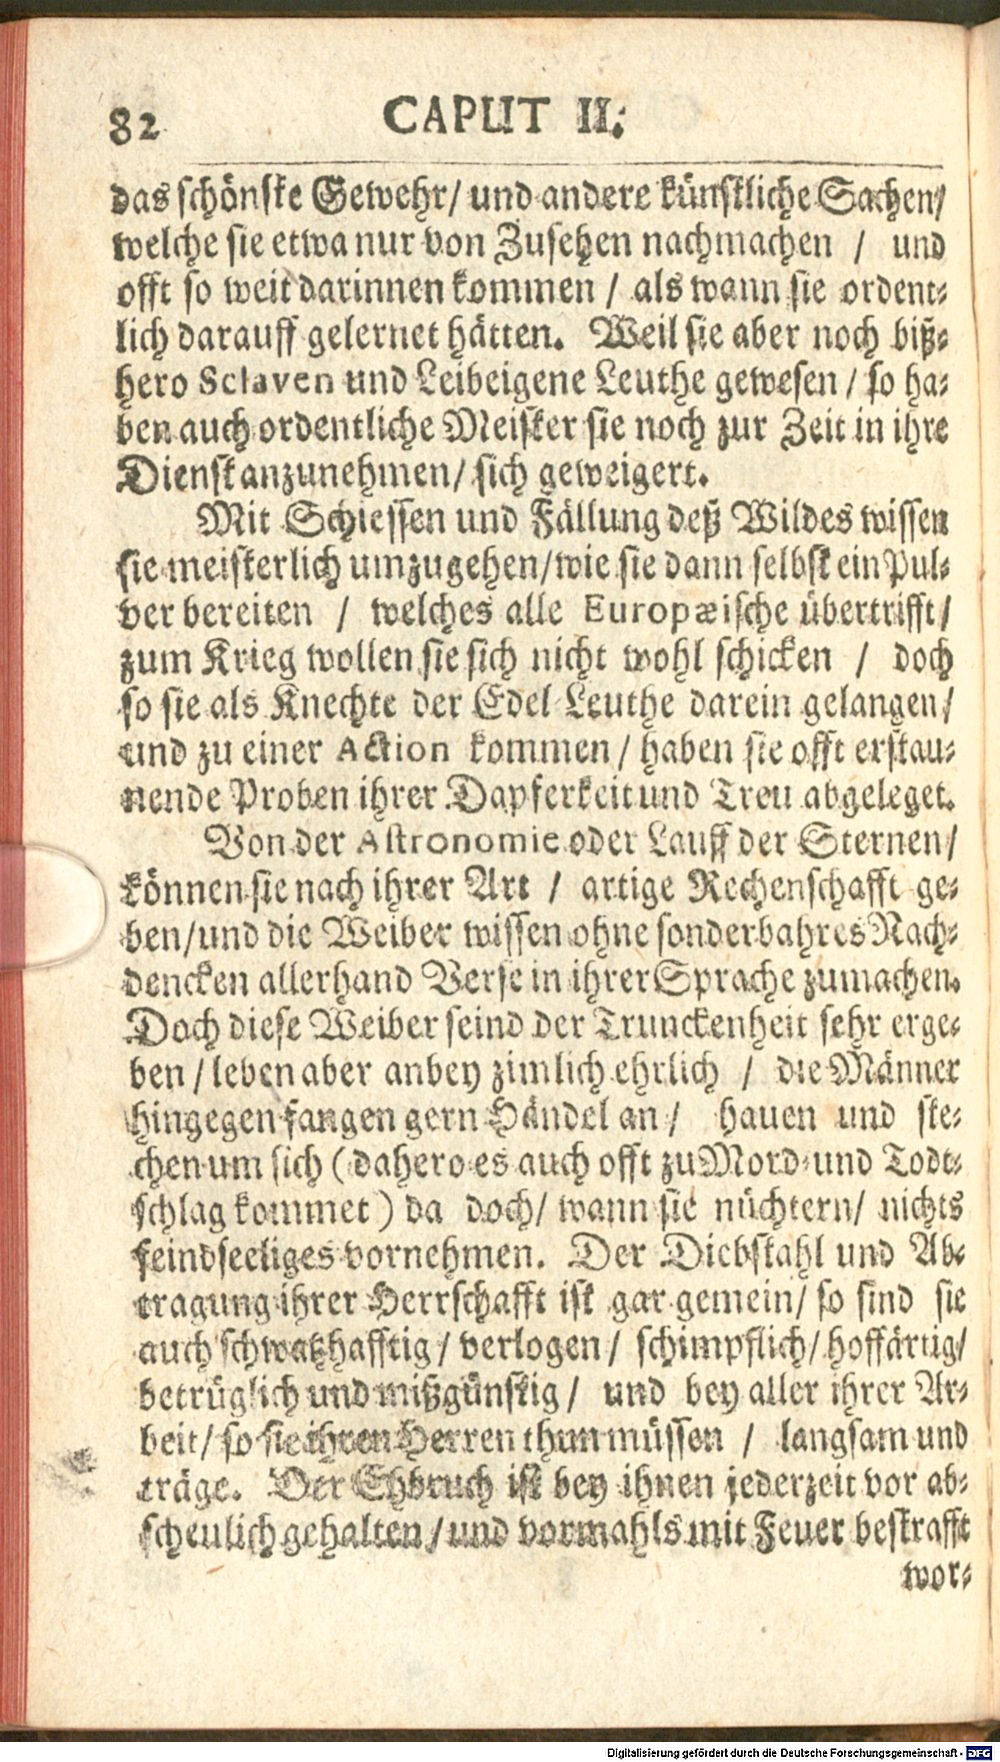 82 CAPUT II.
das schönste Gewehr/ und andere künstliche Sachen/
welche sie etwa nur von Zusehen nachmachen / und
offt so weit darinnen kommen / als wann sie ordent-
lich darauff gelernet hätten. Weil sie aber noch biß-
hero Sclaven und Leibeigene Leuthe gewesen / so ha-
ben auch ordentliche Meister sie noch zur Zeit in ihre
Dienst anzunehmen/ sich geweigert.
Mit Schiessen und Fällung deß Wildes wissen
sie meisterlich umzugehen/ wie sie dann selbst ein Pul-
ver bereiten / welches alle Europæische übertrifft/
zum Krieg wollen sie sich nicht wohl schicken / doch
so sie als Knechte der Edel Leuthe darein gelangen/
und zu einer Action kommen / haben sie offt erstau-
nende Proben ihrer Dapferkeit und Treu abgeleget.
Von der Astronomie oder Lauff der Sternen/
können sie nach ihrer Art / artige Rechenschafft ge-
ben/ und die Weiber wissen ohne sonderbahres Nach-
dencken allerhand Verse in ihrer Sprache zumachen.
Doch diese Weiber seind der Trunckenheit sehr erge-
ben / leben aber anbey zimlich ehrlich / die Männer
hingegen fangen gern Händel an / hauen und ste-
chen um sich ( dahero es auch offt zu Mord- und Todt-
schlag kommet ) da doch/ wann sie nüchtern/ nichts
feindseeliges vornehmen. Der Diebstahl und Ab-
tragung ihrer Herrschafft ist gar gemein/ so sind sie
auch schwatzhafftig / verlogen / schimpflich/ hoffärtig/
betrüglich und mißgünstig / und bey aller ihrer Ar-
beit/ so sie ihren Herren thun müssen / langsam und
träge. Der Ehbruch ist bey ihnen jederzeit vor ab-
scheulich gehalten / und vormahls mit Feuer bestrafft
wor-
Digitalisierung gefördert durch die Deutsche Forschungsgemeinschaft - DFG